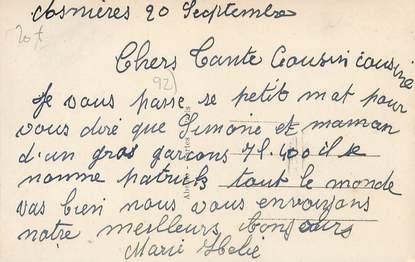 Asnières 20 Septembre
20f
Chers Tante Cousin cousine
92)
Je vous passe se petit mat pour
vous diré que Simone et maman
d'un gros garcons 7l.400 il se
nomme patrick tout le monde
vas bien nous vous envoyons
notre meilleurs bonjours
Marie